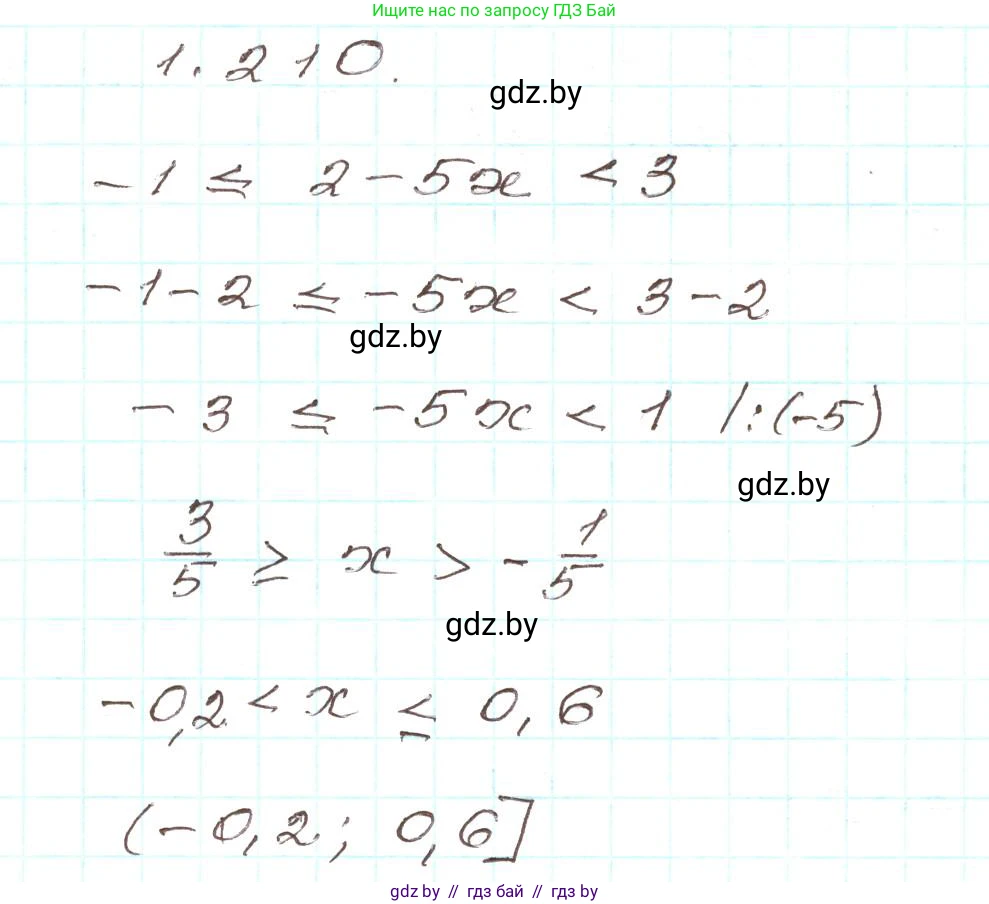 Ищите нас по запросу ГДЗ Бай
1.210.
gdz.by
-1 ≤ 2-5x < 3
-1-2 ≤ -5x < 3-2
gdz.by
-3 ≤ -5x < 1 /:(-5)
gdz.by
3/5 ≥ x > -1/5
gdz.by
-0,2 < x ≤ 0,6
(-0,2; 0,6]
gdz.by // гдз бай // гдз by